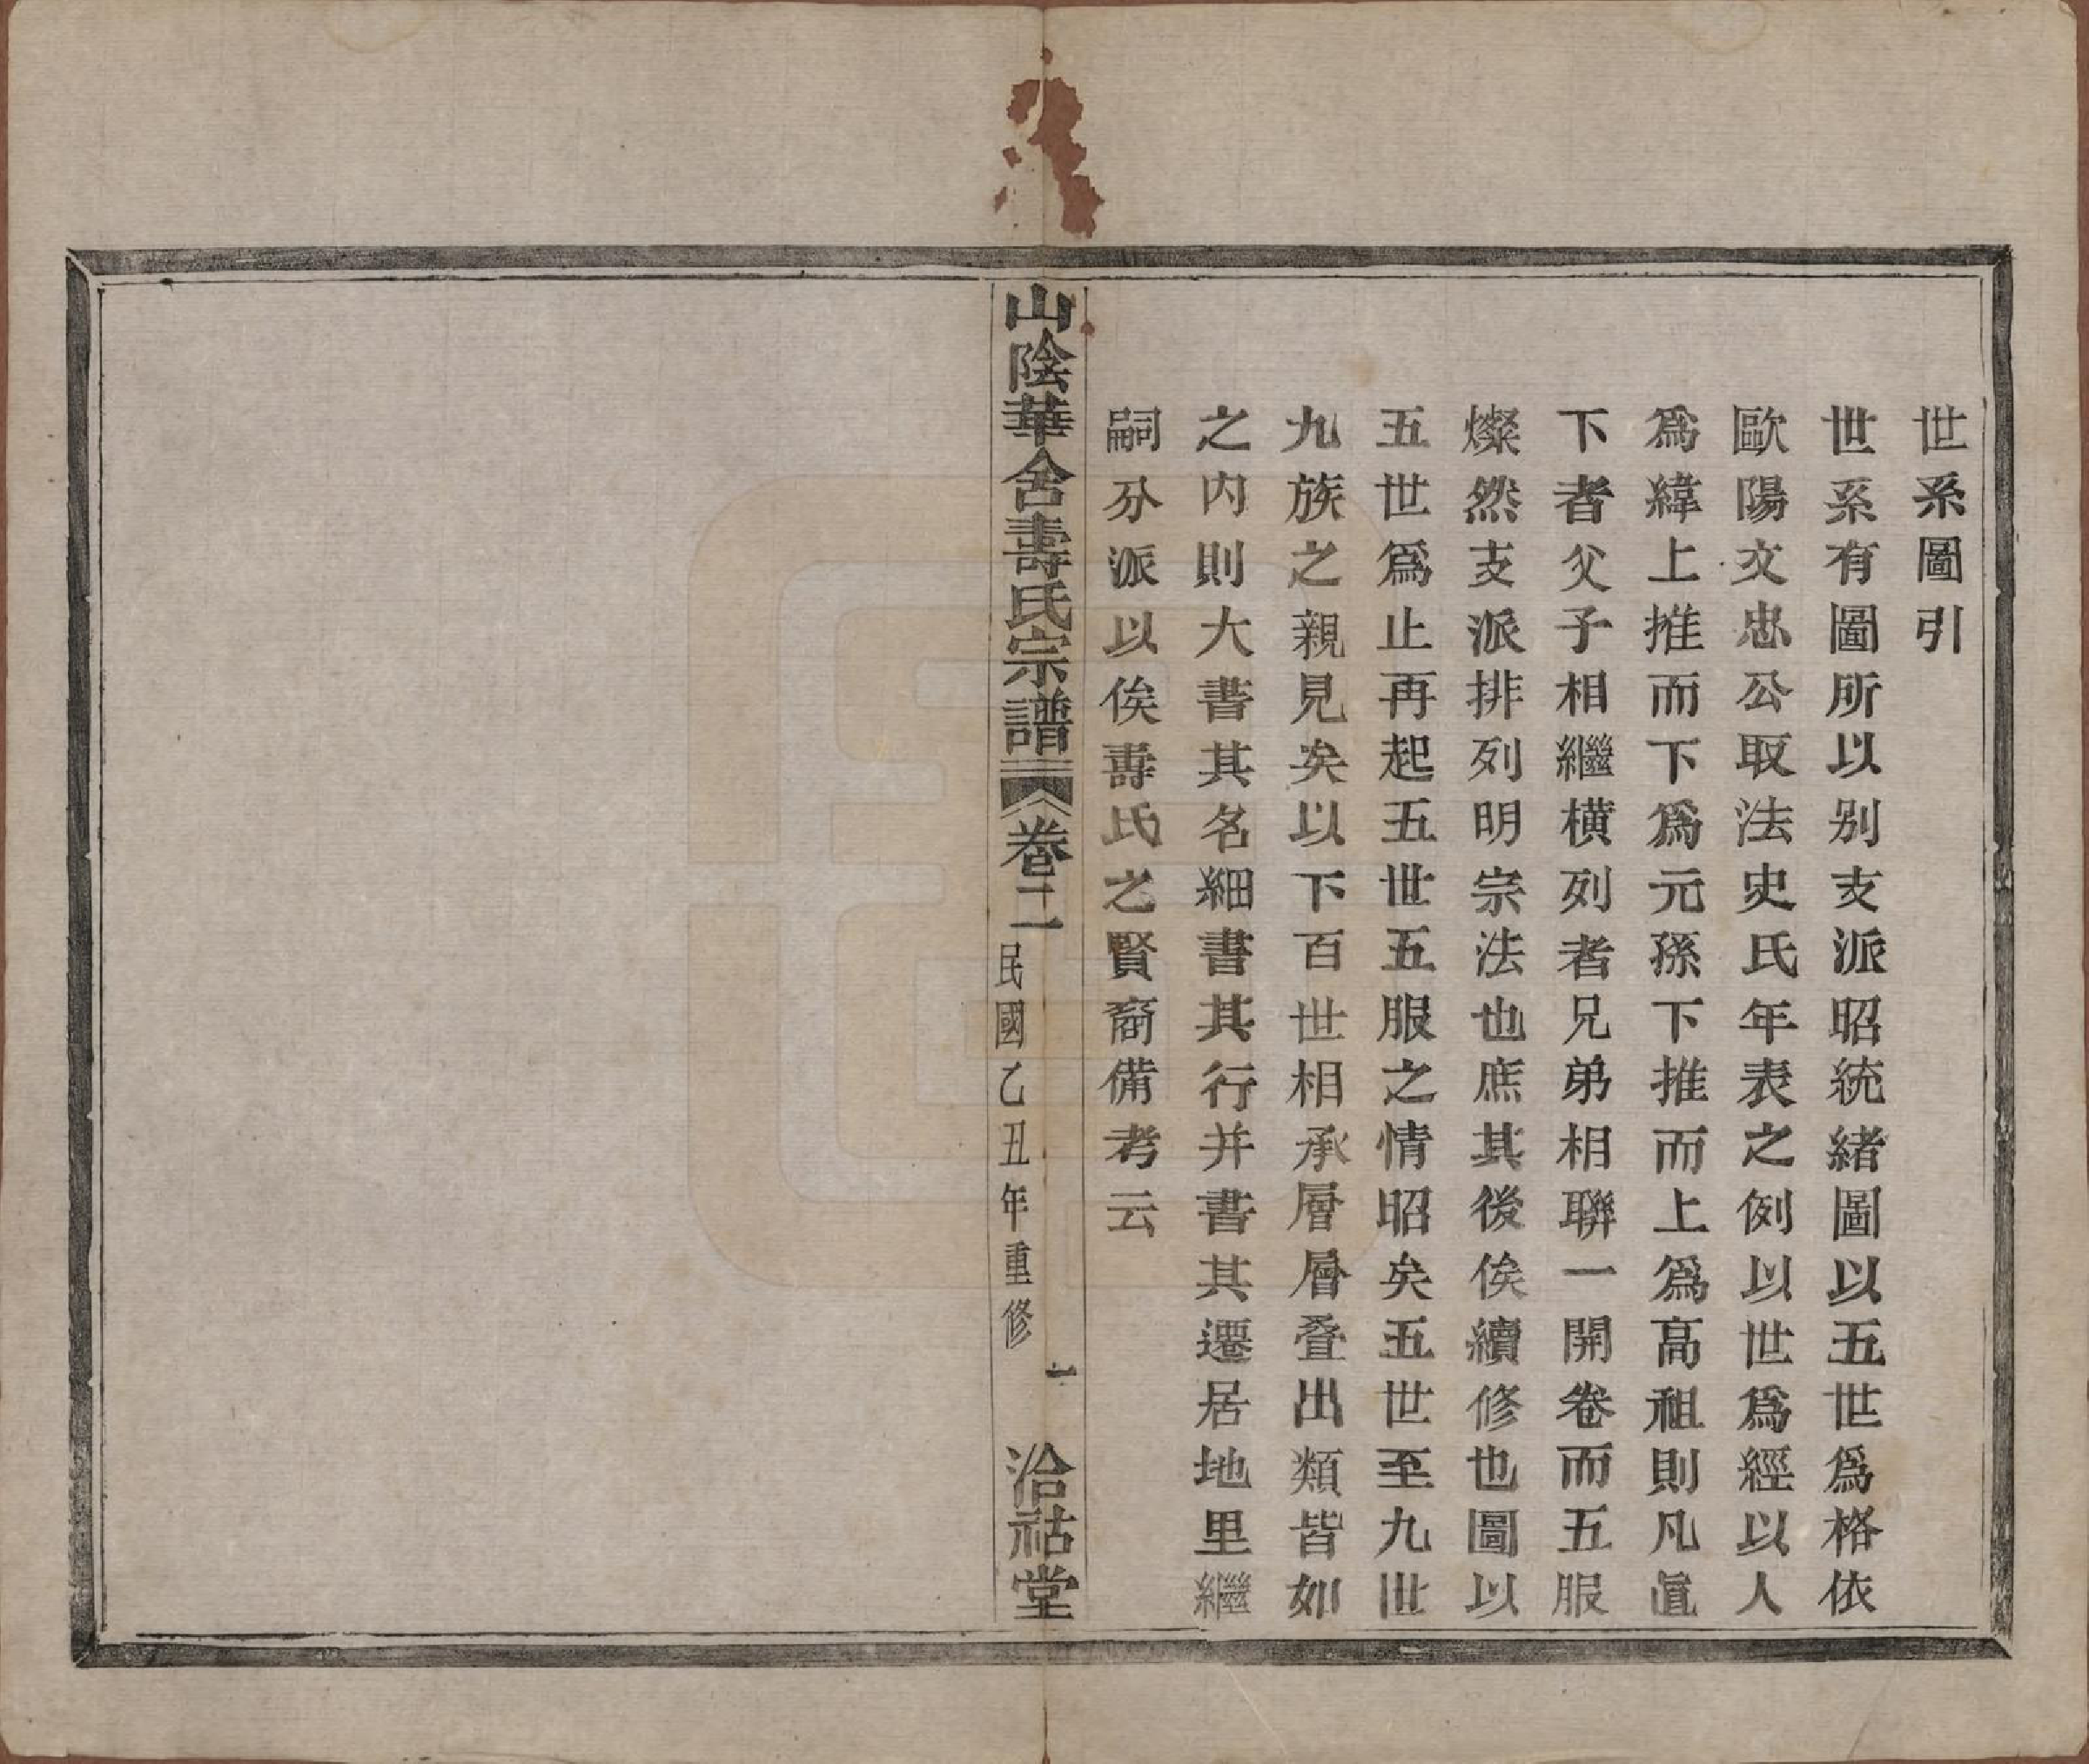 世系圖引
世系有圖所以别支派昭統緒圖以五世爲格依
歐陽文忠公取法史氏年表之例以世爲經以人
爲緯上推而下爲元孫下推而上爲高祖則凡直
下者父子相繼横列者兄弟相聯一開卷而五服
燦然支派排列明宗法也庶其後俟續修也圖以
五世爲止再起五世五服之情昭矣五世至九世
九族之親見矣以下百世相承層層叠出類皆如
之内則大書其名細書其行并書其遷居地里繼
嗣分派以俟壽氏之賢裔備考云
山陰華舍壽氏宗譜 卷二 民國乙丑年重修 一 洽祜堂